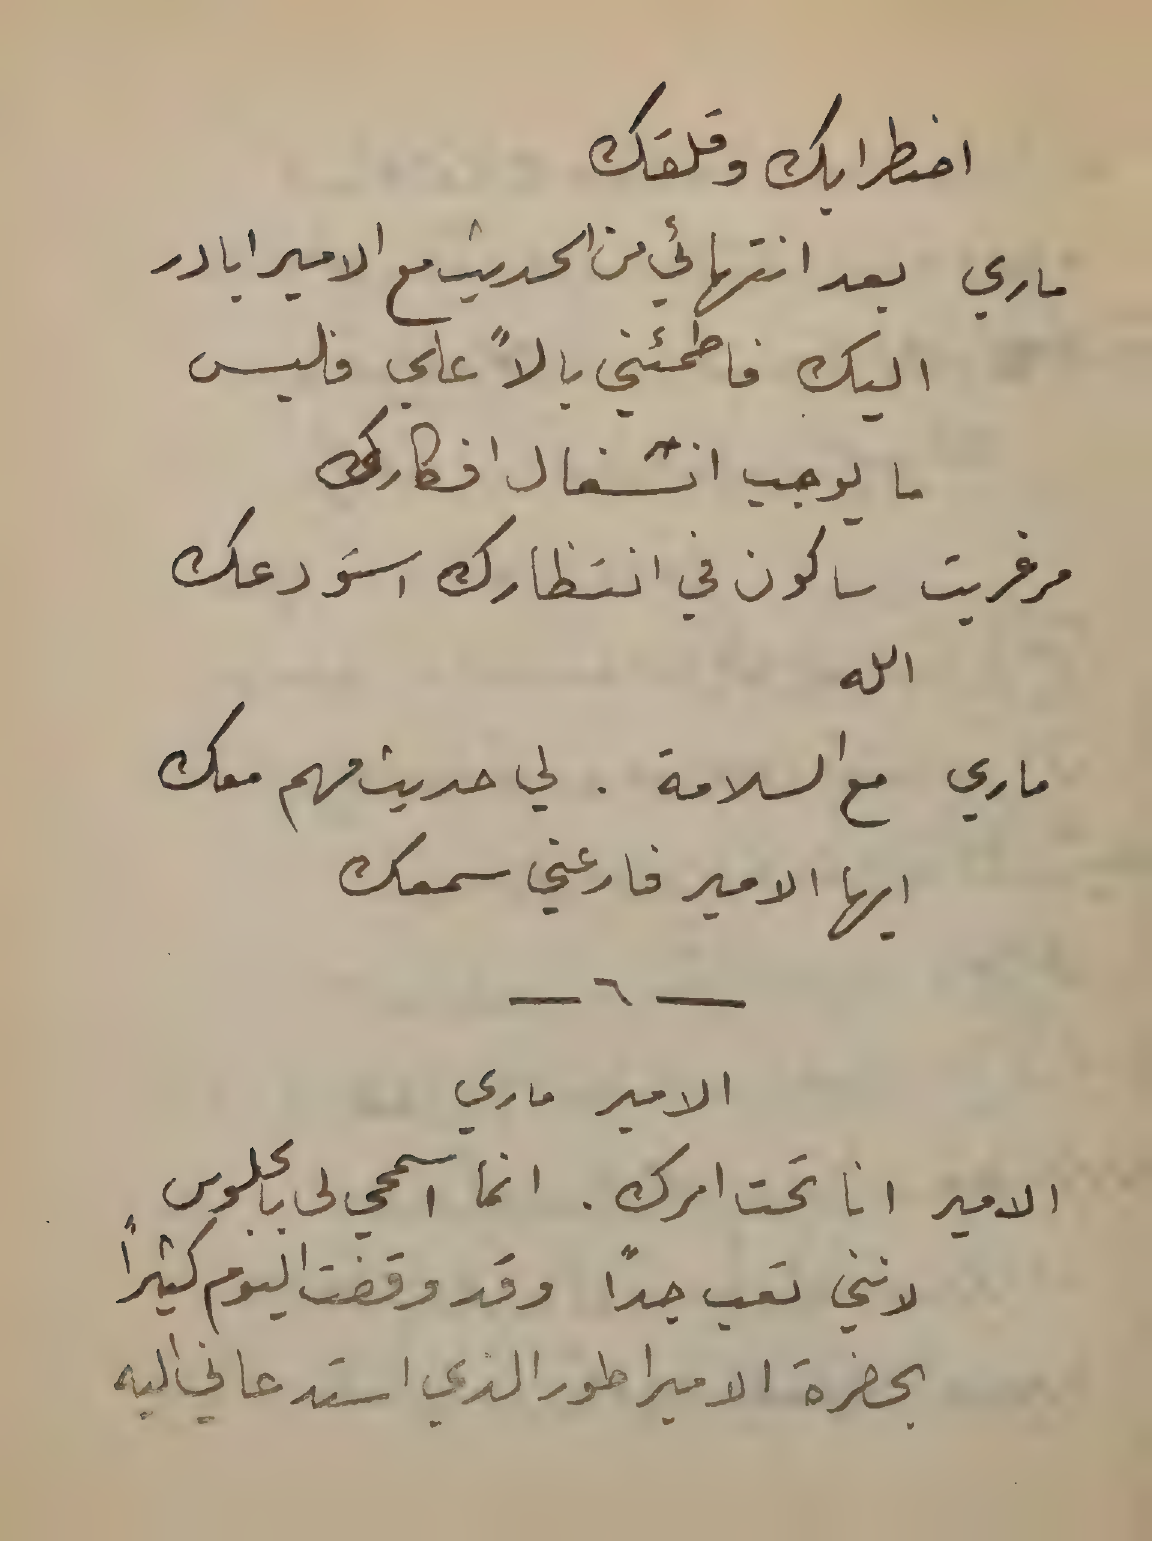 اضطرابك وقلقك
ماري بعد انتهائي من الحديث مع الامير ابادر
اليك فاطمئني بالاً علي فليس
ما يوجب انشغال افكارك
مرغريت ساكون في انتظارك استودعك
الله
ماري مع السلامة . لي حديث مهم معك
ايها الامير فارعني سمعك
— ٦ —
الامير ماري
الامير انا تحت امرك . انما اسمحي لى بالجلوس
لانني تعب جداً وقد وقفت اليوم كثيراً
بحضرة الاميراطور الذي استدعاني اليه